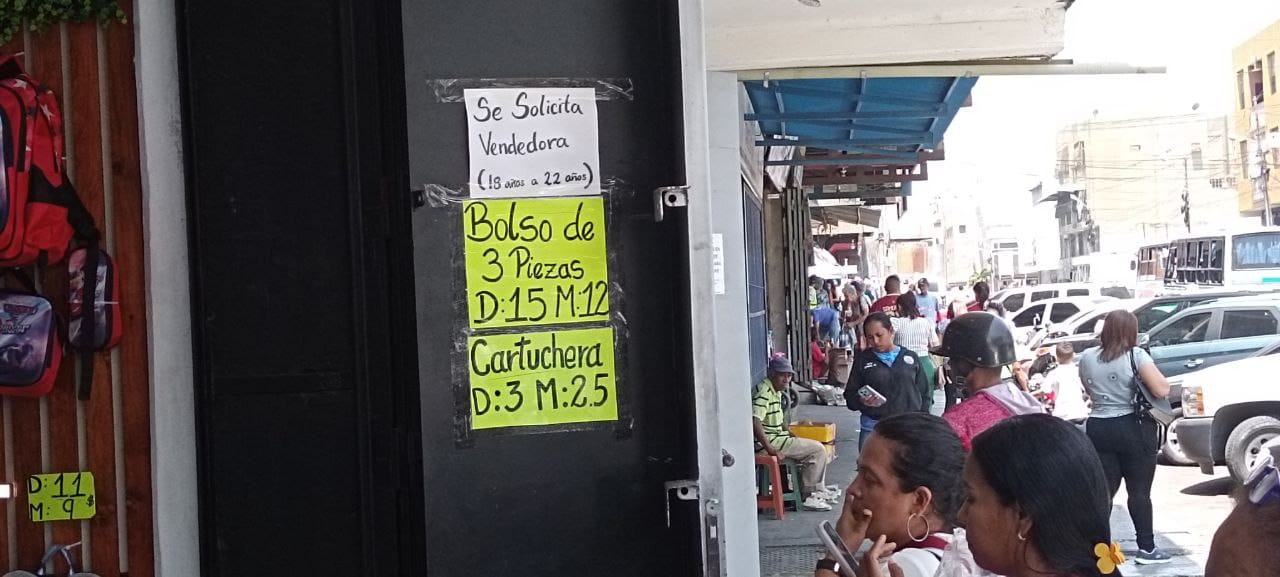 Se Solicita
Vendedora
(18 años a 22 años)
Bolso de
3 Piezas
D:15 M:12
Cartuchera
D:3 M:2.5
D:11
M: 9 $